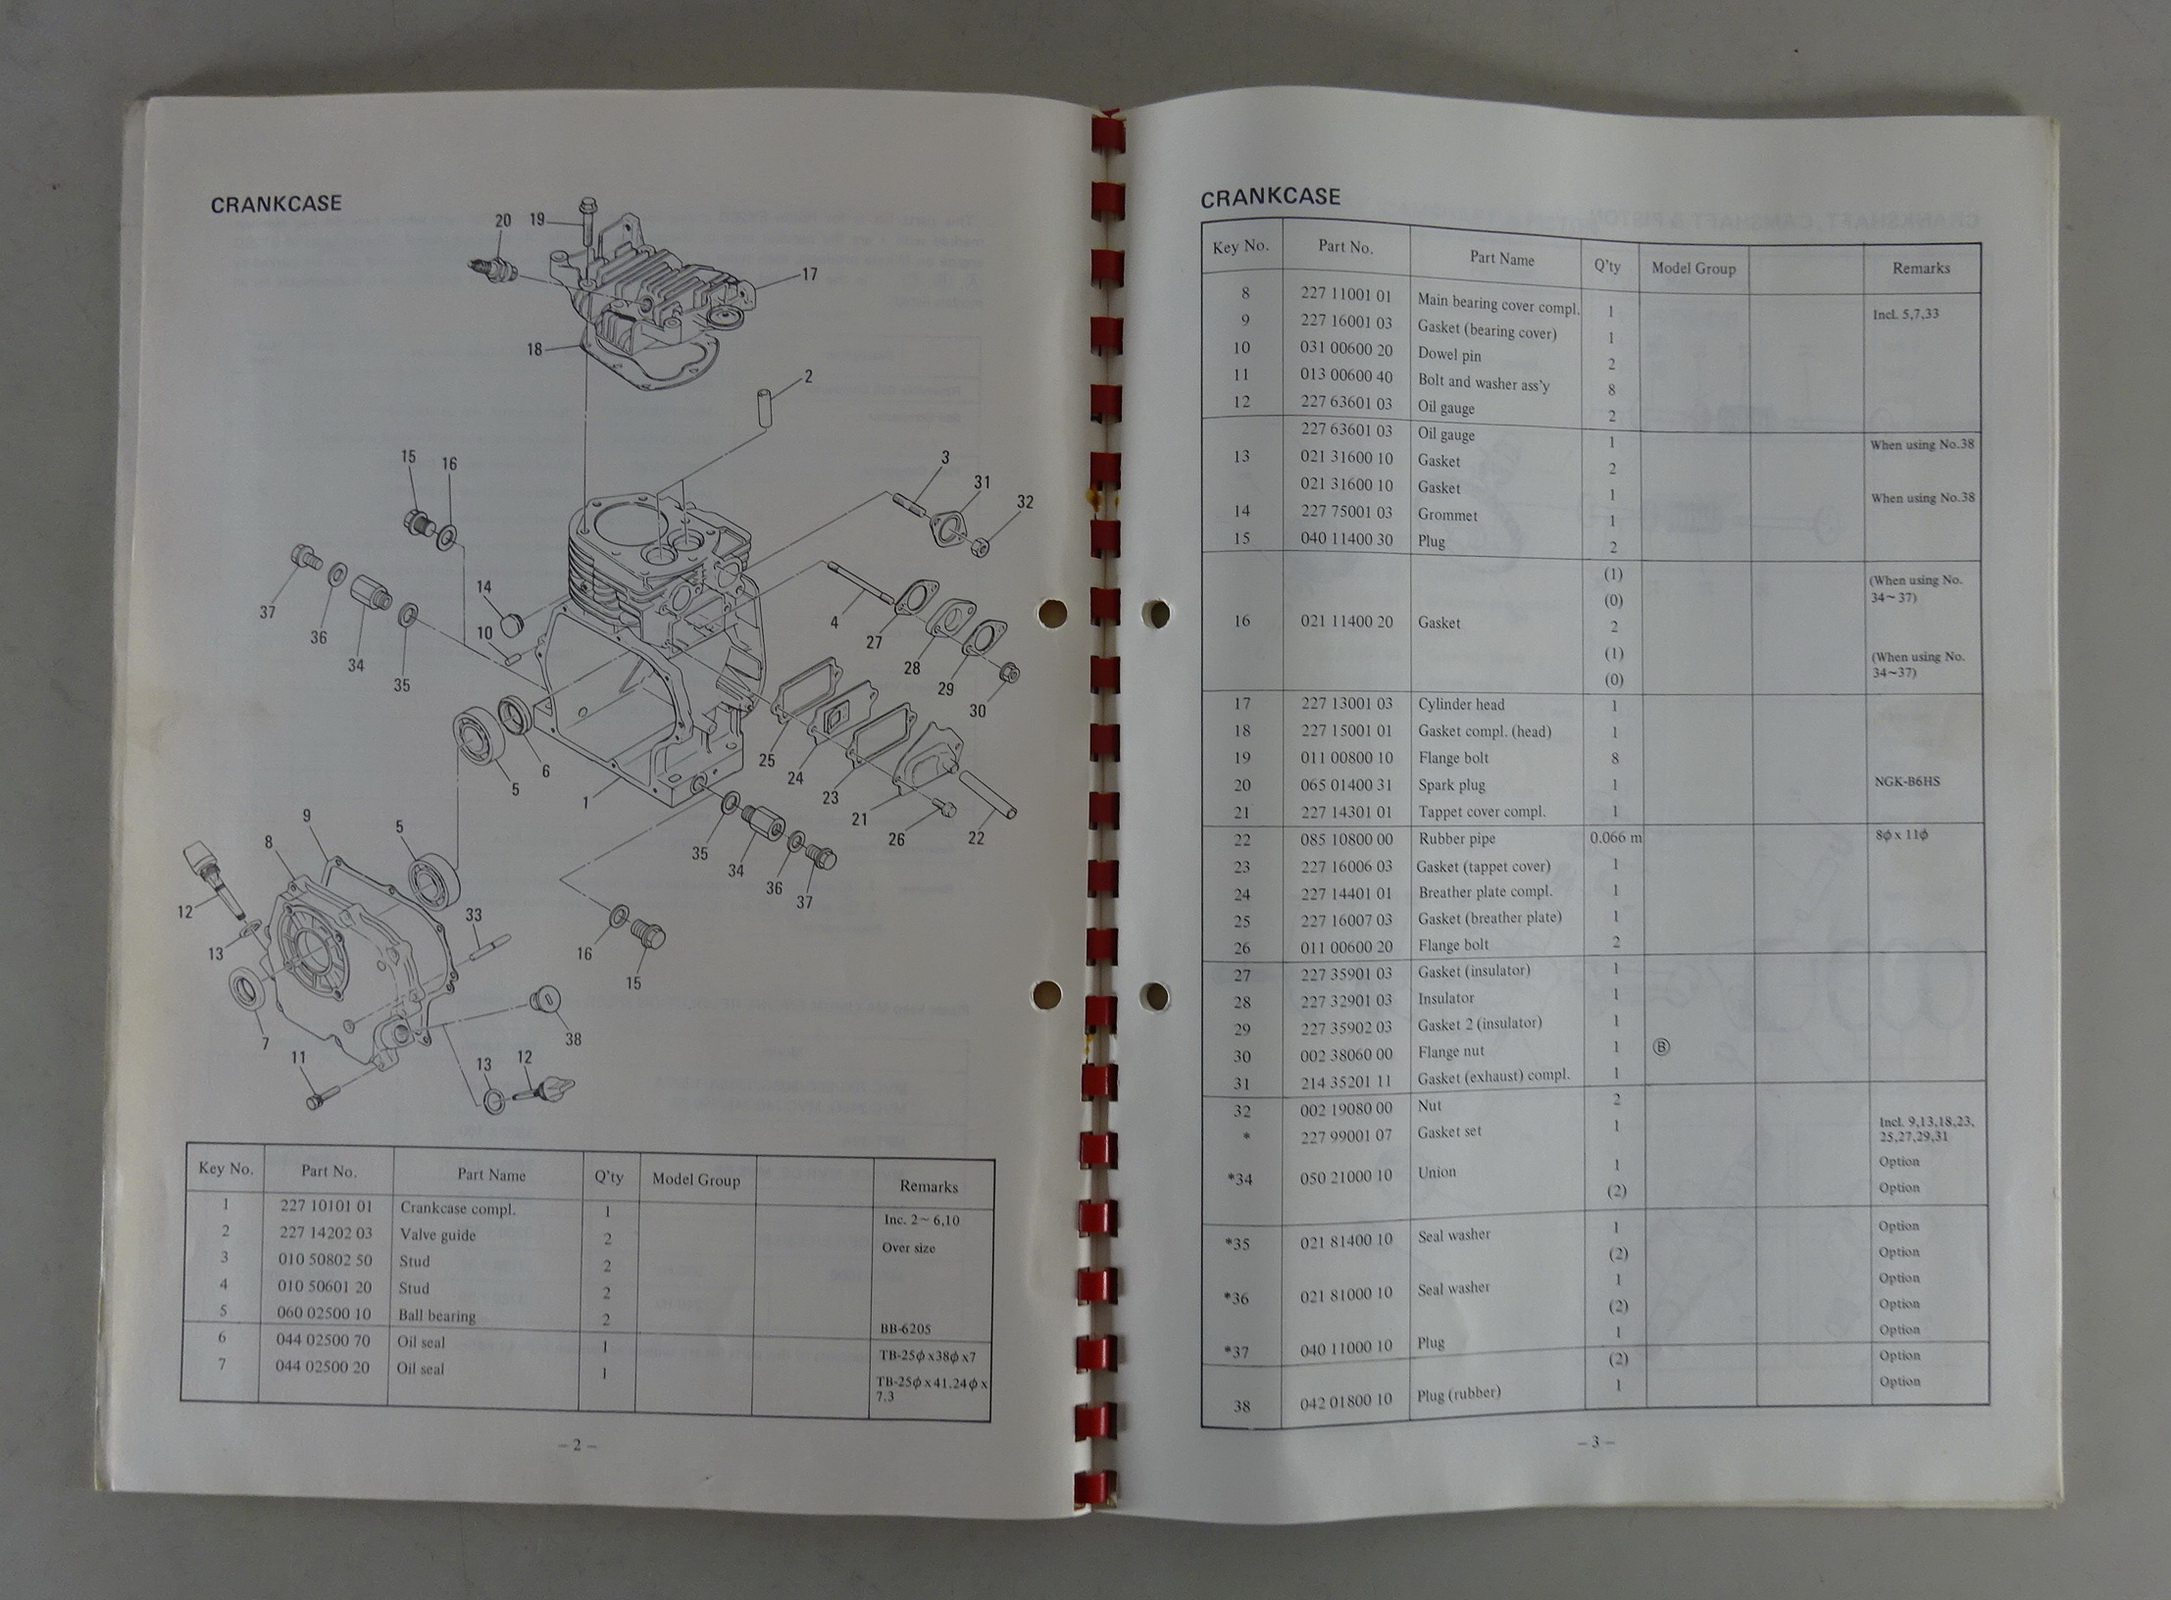 CRANKCASE
20
19
17
18
2
15
16
3
31
32
37
36
34
35
14
10
4
27
28
29
30
5
6
1
25
24
23
21
26
22
9
8
5
35
34
36
37
12
13
33
16
15
7
38
11
13
12
Key No. Part No. Part Name Q'ty Model Group Remarks
1 227 10101 01 Crankcase compl. 1 Inc. 2~6,10
2 227 14202 03 Valve guide 2 Over size
3 010 50802 50 Stud 2
4 010 50601 20 Stud 2
5 060 02500 10 Ball bearing 2 BB-6205
6 044 02500 70 Oil seal 1 TB-25φx38φx7
7 044 02500 20 Oil seal 1 TB-25φx41.24φx
7.3
– 2 –
CRANKCASE
Key No. Part No. Part Name Q'ty Model Group Remarks
8 227 11001 01 Main bearing cover compl. 1 Incl. 5,7,33
9 227 16001 03 Gasket (bearing cover) 1
10 031 00600 20 Dowel pin 2
11 013 00600 40 Bolt and washer ass'y 8
12 227 63601 03 Oil gauge 2
227 63601 03 Oil gauge 1 When using No.38
13 021 31600 10 Gasket 2
021 31600 10 Gasket 1 When using No.38
14 227 75001 03 Grommet 1
15 040 11400 30 Plug 2
(1) (When using No.
(0) 34~37)
16 021 11400 20 Gasket 2
(1) (When using No.
(0) 34~37)
17 227 13001 03 Cylinder head 1
18 227 15001 01 Gasket compl. (head) 1
19 011 00800 10 Flange bolt 8
20 065 01400 31 Spark plug 1 NGK-B6HS
21 227 14301 01 Tappet cover compl. 1
22 085 10800 00 Rubber pipe 0.066 m 8φ x 11φ
23 227 16006 03 Gasket (tappet cover) 1
24 227 14401 01 Breather plate compl. 1
25 227 16007 03 Gasket (breather plate) 1
26 011 00600 20 Flange bolt 2
27 227 35901 03 Gasket (insulator) 1
28 227 32901 03 Insulator 1
29 227 35902 03 Gasket 2 (insulator) 1
30 002 38060 00 Flange nut 1 Ⓑ
31 214 35201 11 Gasket (exhaust) compl. 1
32 002 19080 00 Nut 2
* 227 99001 07 Gasket set 1 Incl. 9,13,18,23,
25,27,29,31
*34 050 21000 10 Union 1 Option
(2) Option
*35 021 81400 10 Seal washer 1 Option
(2) Option
*36 021 81000 10 Seal washer 1 Option
(2) Option
*37 040 11000 10 Plug 1 Option
(2) Option
38 042 01800 10 Plug (rubber) 1 Option
– 3 –